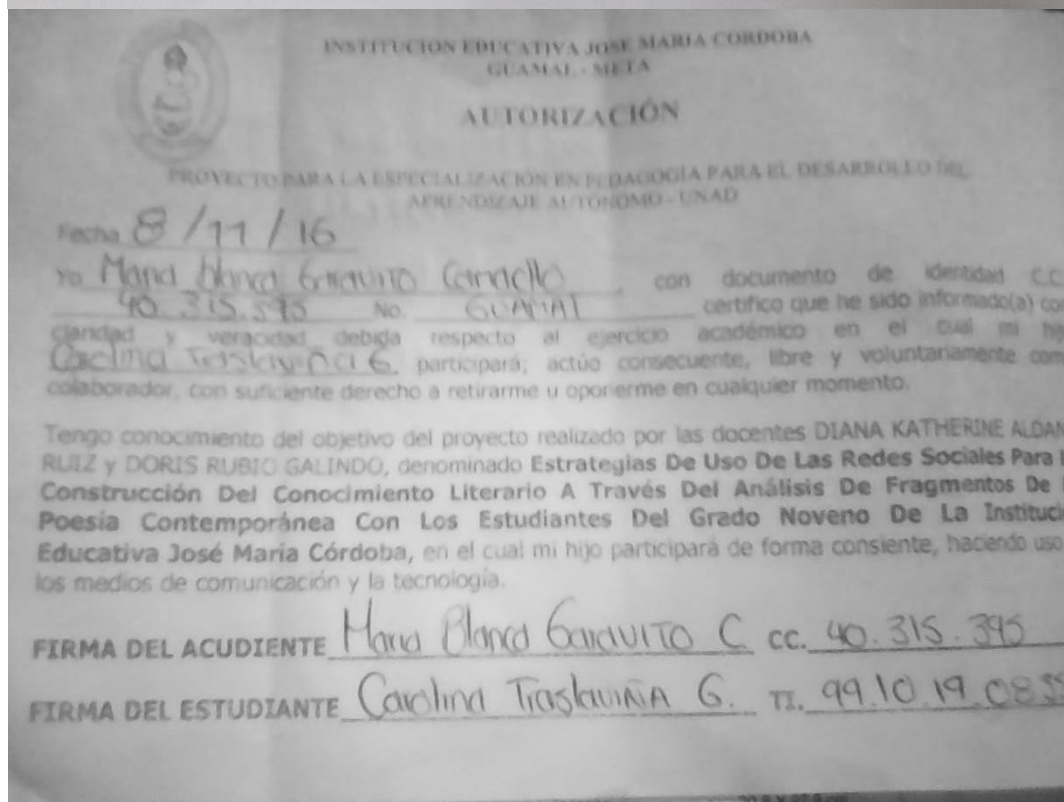 INSTITUCION EDUCATIVA JOSE MARIA CORDOBA
GUAMAL - META
AUTORIZACIÓN
PROYECTO PARA LA ESPECIALIZACIÓN EN PEDAGOGÍA PARA EL DESARROLLO DEL
APRENDIZAJE AUTÓNOMO - UNAD
Fecha 8/11/16
Yo Maria blanca Garavito con documento de identidad C.C.
No. GUAMAl certifico que he sido informado(a) con
claridad y veracidad debida respecto al ejercicio académico en el cual mi hij
Carolina Traslaviña G participará; actúo consecuente, libre y voluntariamente com
colaborador, con suficiente derecho a retirarme u oponerme en cualquier momento.
Tengo conocimiento del objetivo del proyecto realizado por las docentes DIANA KATHERINE ALDAN
RUIZ y DORIS RUBIO GALINDO, denominado Estrategias De Uso De Las Redes Sociales Para l
Construcción Del Conocimiento Literario A Través Del Análisis De Fragmentos De
Poesía Contemporánea Con Los Estudiantes Del Grado Noveno De La Instituci
Educativa José María Córdoba, en el cual mi hijo participará de forma consiente, haciendo uso
los medios de comunicación y la tecnología.
FIRMA DEL ACUDIENTE Maria Blanca Garavito C CC. 40.315.395
FIRMA DEL ESTUDIANTE Carolina Traslaviña G. TI. 99.10.19.083